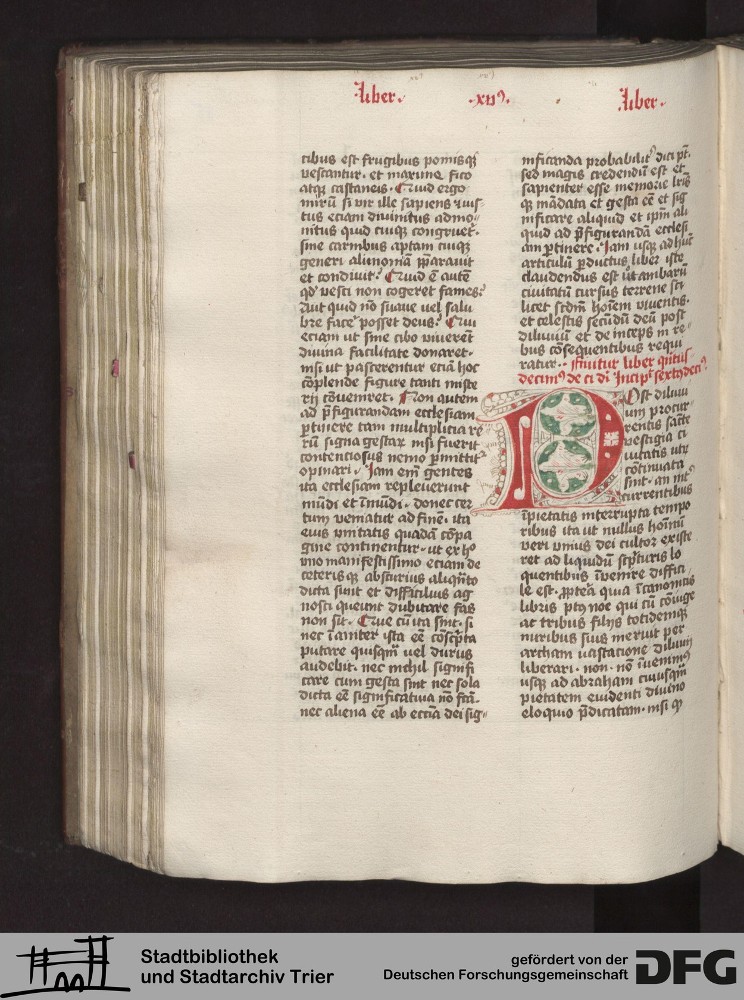 Liber
xvꝰ.
Liber
cibus est frugibus pomisqꝫ
vescantur. et maxime fico
atqꝫ castaneis. Quid ergo
mirū si vir ille sapiens ⁊ ius-
tus eciam divinitus admo-
nitus quid cuiqꝫ congruet.
sine carnibus aptam cuiqꝫ
generi alimoniā p̄parauit
et condiuit. Quid ē autē
qd̓ vesci non cogeret fames.
Aut quid nō suaue uel salu
bre facē posset deus. Qui
eciam ut sine cibo viuerent
divina facilitate donaret.
nisi ut pascerentur eciā hoc
cōplende figure tanti miste
rij cōueniret. Non autem
ad p̄figurandam ecclesiam
ꝑtinere tam multiplicia re
rū signa gestaꝝ nisi fuerit
contenciosus nemo ꝑmittit᷑
opinari. Jam em̄ gentes
ita ecclesiam repleuerunt
mūdi et īmūdi. donec cer
tum veniatur ad finē. ita
eius vnitatis quadā cōpa
gine continentur. ut ex hͦ
vno manifestissimo eciam de
ceteris qꝫ obscurius aliqn̄to
dicta sunt et difficilius ag
nosci queunt dubitare fas
non sit. Que cū ita sint. si
nec īaniter ista eē cōsc̄pta
putare quisqm̄ uel durus
audebit. nec nichil signifi
care cum gesta sint nec sola
dicta eē significatiua nō fcā.
nec aliena eē ab ecc̄ia dei sig-
nificanda probabilit᷑ dici pt̄.
sed magis credendū est et
sapienter esse memorie lr̄is
qꝫ mādata et gesta eē et sig
nificare aliquid et ip̄m ali
quid ad p̄figurandā ecclesi
am ꝑtinere. Jam usqꝫ ad hūc
articulū ꝑductus liber iste
claudendus est ut ambarū
civitatū cursus terrene sci
licet scd̄m hoīem viuentis.
et celestis secūdū deū post
diluuiū et deinceps in re-
bus cōsequentibus requi
ratur. Finitur liber qui̅tus
decimꝰ de ci di Incipit sextꝰdecꝰ.
Post diluui
um procur-
rentis sācte
vestigia ci
uitatis utꝝ
cōtinuata
sint. an int᷑
currentibus
īpietatis interrupta tempo
ribus ita ut nullus hoīm̄
veri vnius dei cultor existe
ret ad liquidū scpt̓uris lo
quentibus īvenire diffici-
le est. ꝓptea quia ī canonicis
libris pꝰ noe qui cū cōiuge
ac tribus filijs totidemqꝫ
nuribus suis meruit per
archam vastacione diluuij
liberari. non. nō īvenimꝰ
usqꝫ ad abraham cuiusqm̄
pietatem euidenti diuino
eloquio p̄dicatam. nisi qꝫ
Stadtbibliothek
und Stadtarchiv Trier
gefördert von der
Deutschen Forschungsgemeinschaft
DFG